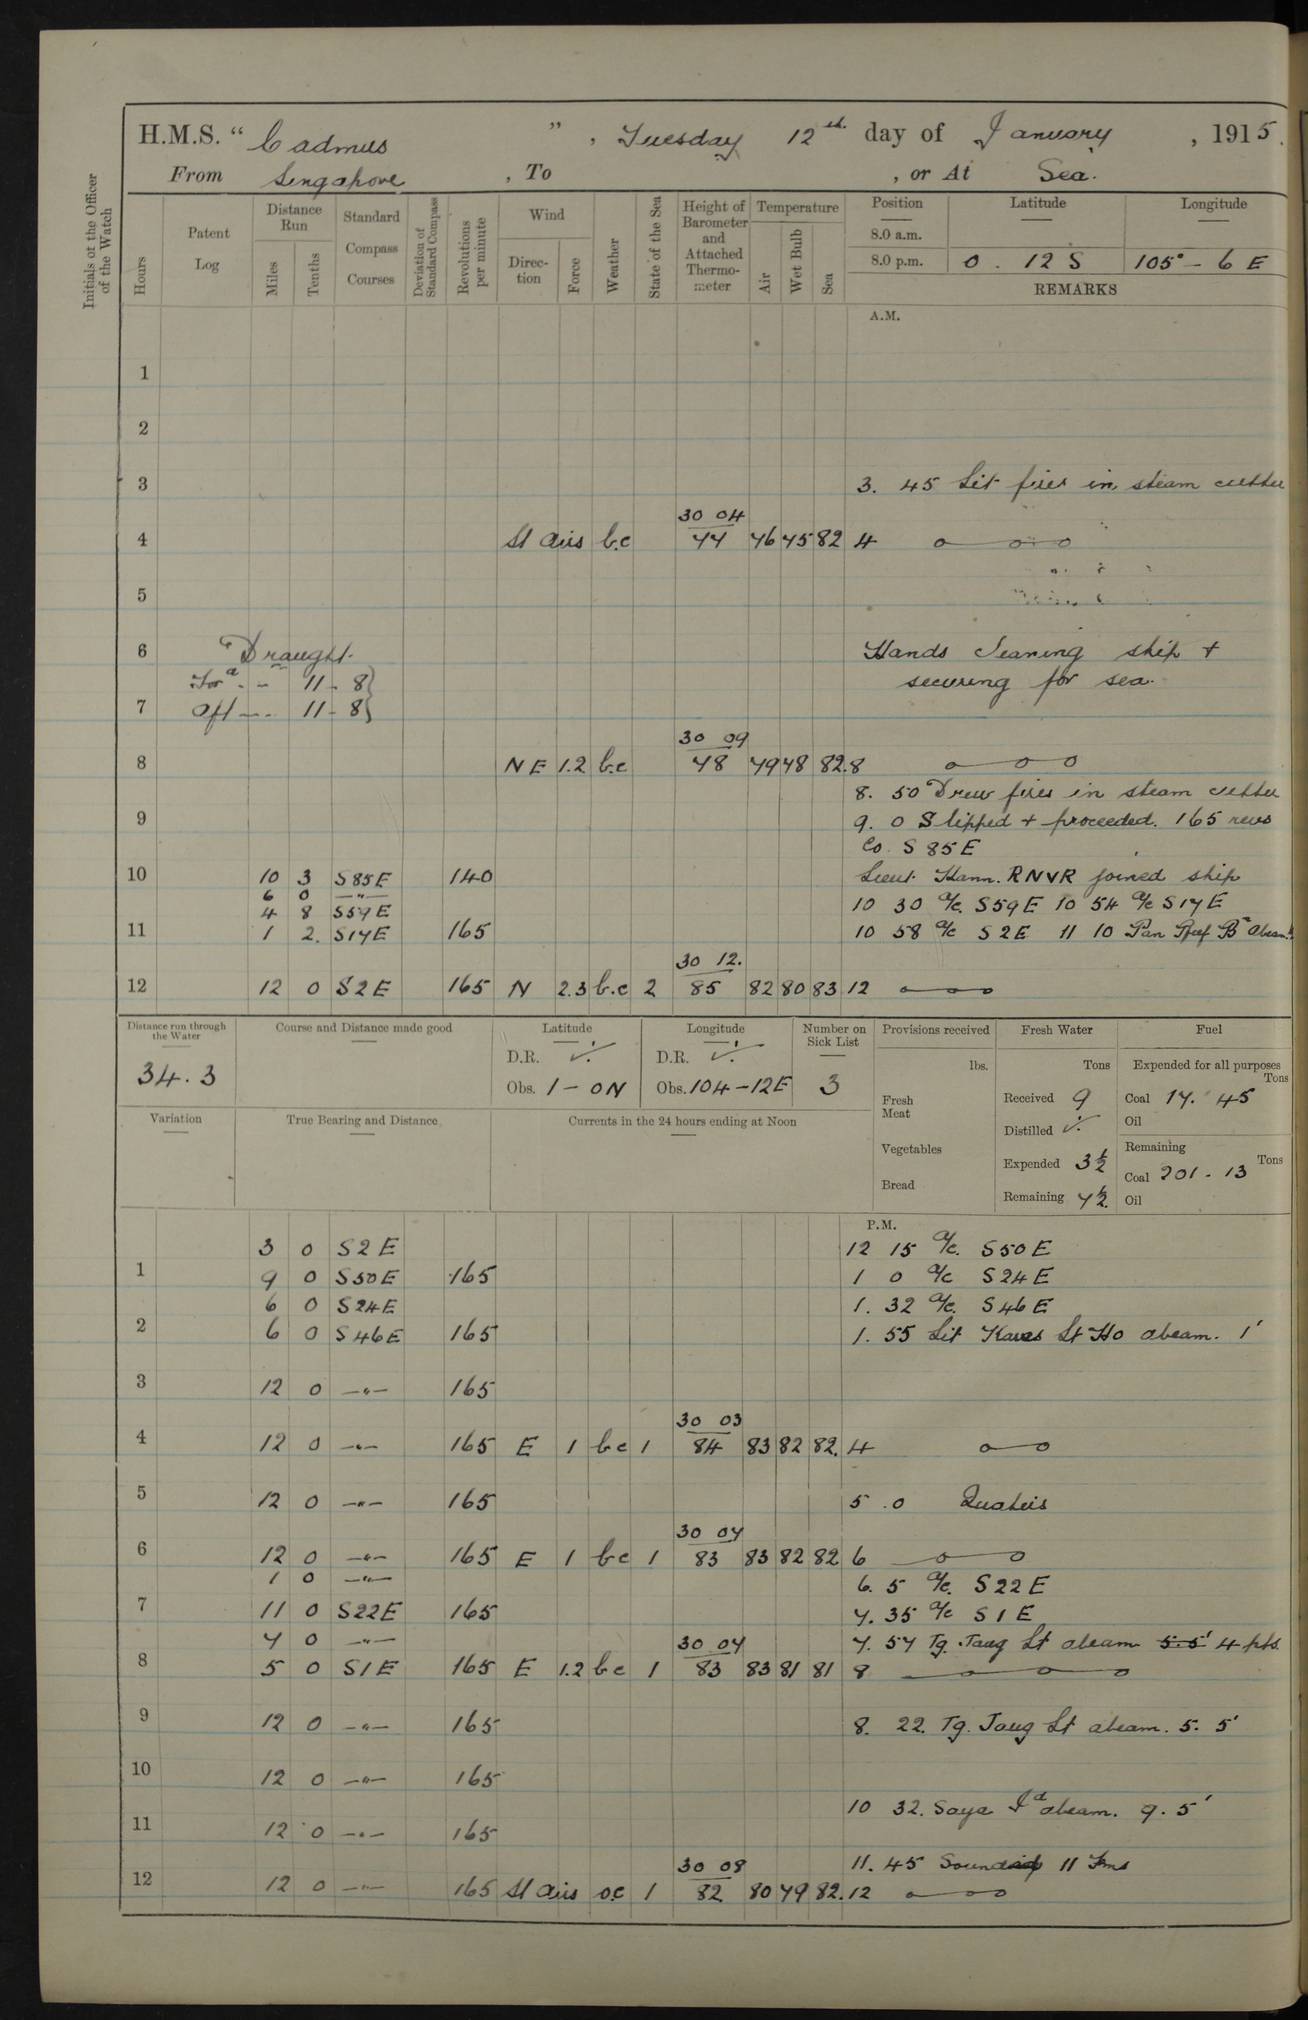 H.M.S. “ Cadmus ” , Tuesday 12th day of January , 1915.
From Singapore , To , or At Sea.
Initials of the Officer of the Watch
Hours
Patent Log
Distance Run
Miles
Tenths
Standard Compass Courses
Deviation of Standard Compass
Revolutions per minute
Wind
Direction
Force
Weather
State of the Sea
Height of Barometer and Attached Thermometer
Temperature
Air
Wet Bulb
Sea
Position Latitude Longitude
8.0 a.m.
8.0 p.m. 0 . 12 S 105° - 6 E
REMARKS
A.M.
1
2
3 3. 45 Lit fires in steam cutter
30 04
4 Lt airs b.c 77 76 75 82 4
5
6 Draught. Hands cleaning ship +
For'd - - 11 - 8 securing for sea.
7 Aft - - - 11 - 8
30 09
8 NE 1.2 b.c 78 79 78 82. 8
8. 50 Drew fires in steam cutter
9 9. 0 Slipped + proceeded. 165 revs
Co. S 85 E
10 10 3 S85E 140 Lieut. Hann. RNVR joined ship
6 0 —"— 10 30 a/c. S59E 10 54 a/c S17E
4 8 S59E
11 1 2. S17E 165 10 58 a/c S2E 11 10 Pan Reef Bn abeam.
30 12.
12 12 0 S2E 165 N 2.3 b.c 2 85 82 80 83 12
Distance run through the Water
34.3
Course and Distance made good
Latitude
D.R.
Obs. 1 - 0N
Longitude
D.R.
Obs. 104 - 12E
Number on Sick List
3
Provisions received
lbs.
Fresh Meat
Vegetables
Bread
Fresh Water
Tons
Received 9
Distilled
Expended 3½
Remaining 7½
Fuel
Expended for all purposes
Tons
Coal 17. 45
Oil
Remaining
Tons
Coal 201 - 13
Oil
Variation
True Bearing and Distance
Currents in the 24 hours ending at Noon
P.M.
3 0 S2E 12 15 a/c. S50E
1 9 0 S50E 165 1 0 a/c S24E
6 0 S24E 1. 32 a/c. S46E
2 6 0 S46E 165 1. 55 Lit Karas Lt Ho abeam. 1'
3 12 0 —"— 165
30 03
4 12 0 —"— 165 E 1 bc 1 84 83 82 82. 4
5 12 0 —"— 165 5 .0 Quarters
30 07
6 12 0 —"— 165 E 1 bc 1 83 83 82 82 6
1 0 —"— 6. 5 a/c. S22E
7 11 0 S22E 165 7. 35 a/c S1E
7 0 —"— 30 07 7. 57 Tg. Jang Lt abeam 5.5' 4 pts
8 5 0 S1E 165 E 1.2 bc 1 83 83 81 81 8
9 12 0 —"— 165 8. 22. Tg. Jang Lt abeam. 5. 5'
10 12 0 —"— 165
10 32. Saya Id abeam. 9. 5'
11 12 0 —"— 165
30 08 11. 45 Sounding 11 Fms
12 12 0 —"— 165 Lt airs o.c 1 82 80 79 82. 12